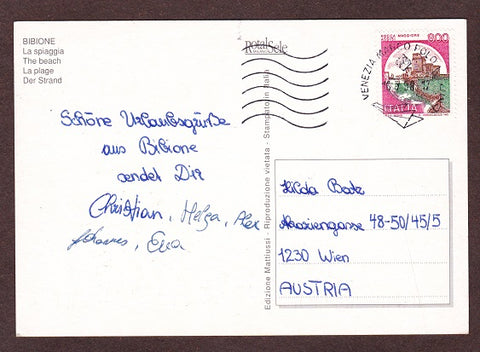 BIBIONE
La spiaggia
The beach
La plage
Der Strand
RotalSele
VENEZIA MARCO POLO
800
ITALIA
Schöne Urlaubsgrüße
aus Bibione
sendet Dir
Christian, Helga, Alex
Johannes, Eva
Edizione Mattiussi - Riproduzione vietata - Stampato in Italia
Hilda Bode
Akaziengasse 48-50/45/5
1230 Wien
AUSTRIA